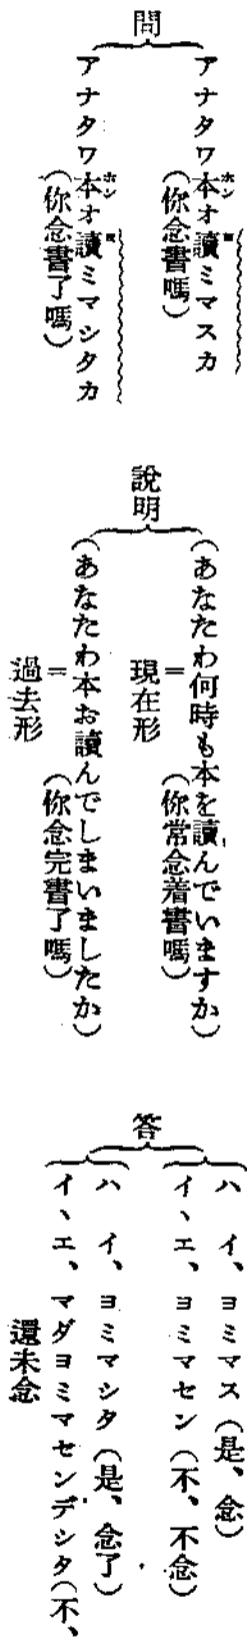 問
アナタワ本ホンオ讀ミマスカ
(你念書嗎)
アナタワ本ホンオ讀ミマシタカ
(你念書了嗎)
說明
(あなたわ何時も本を讀んでいますか)
=
現在形
(你常念着書嗎)
(あなたわ本お讀んでしまいましたか)
=
過去形
(你念完書了嗎)
答
ハイ、ヨミマス(是、念)
イヽエ、ヨミマセン(不、不念)
ハイ、ヨミマシタ(是、念了)
イヽエ、マダヨミマセンデシタ(不、
還未念